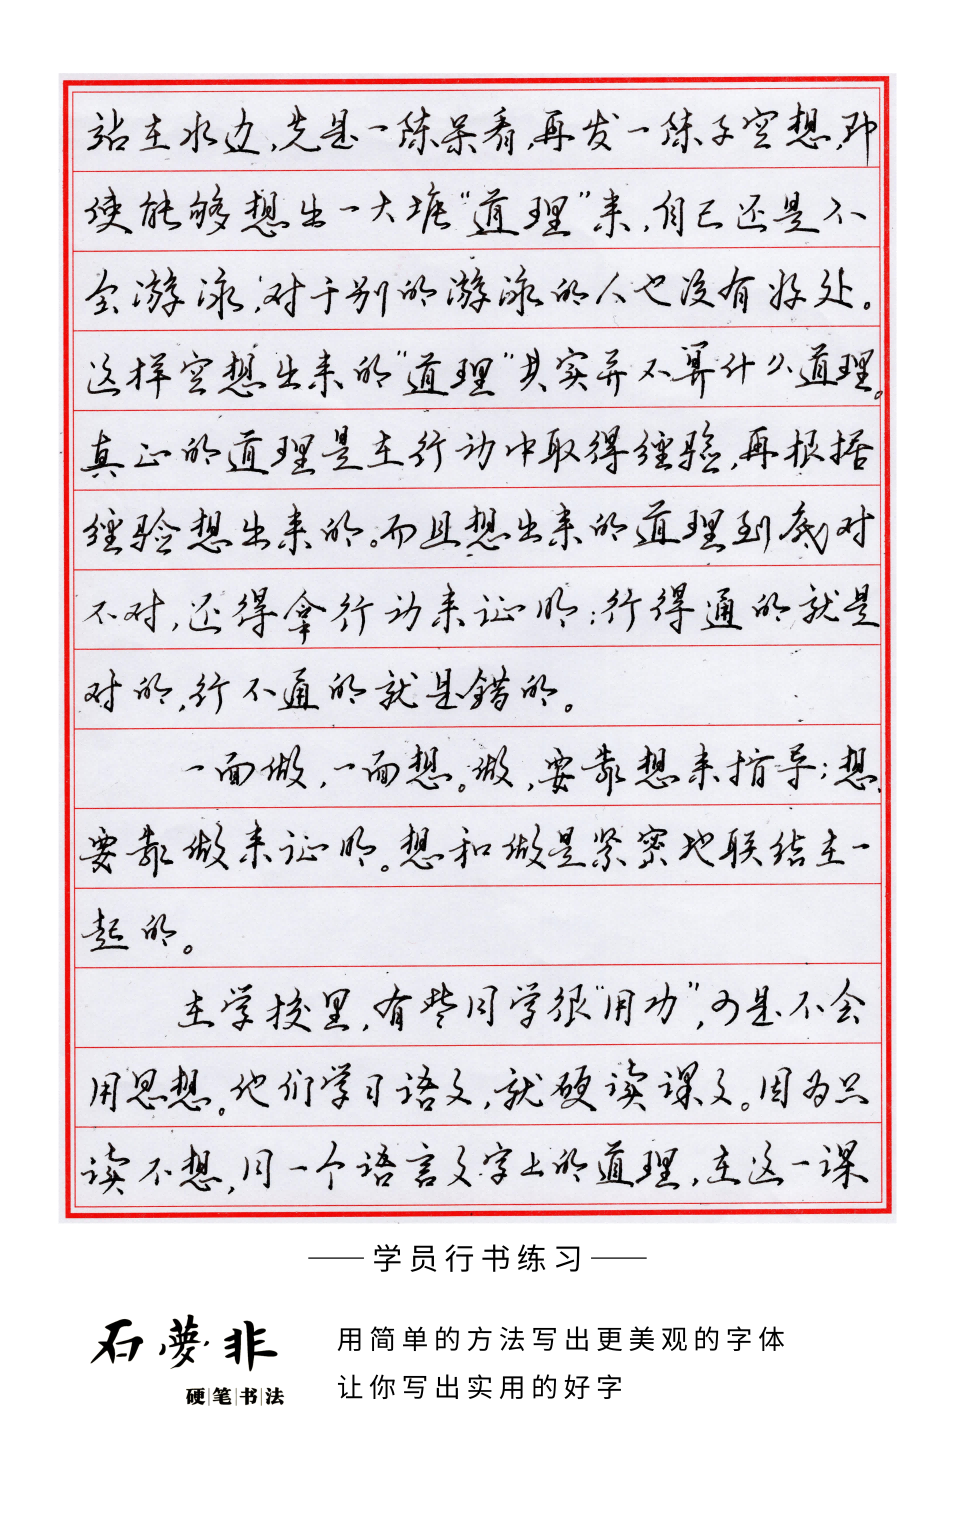 站在水边，先是一阵呆看，再发一阵子空想，即
使能够想出一大堆“道理”来，自己还是不
会游泳，对于别的游泳的人也没有好处。
这样空想出来的“道理”其实并不算什么道理。
真正的道理是在行动中取得经验，再根据
经验想出来的。而且想出来的道理到底对
不对，还得拿行动来证明：行得通的就是
对的，行不通的就是错的。
一面做，一面想。做，要靠想来指导；想，
要靠做来证明。想和做是紧密地联结在一
起的。
在学校里，有些同学很“用功”，可是不会
用思想。他们学习语文，就硬读课文。因为只
读不想，同一个语言文字上的道理，在这一课
学员行书练习
石夢非
硬笔书法
用简单的方法写出更美观的字体
让你写出实用的好字